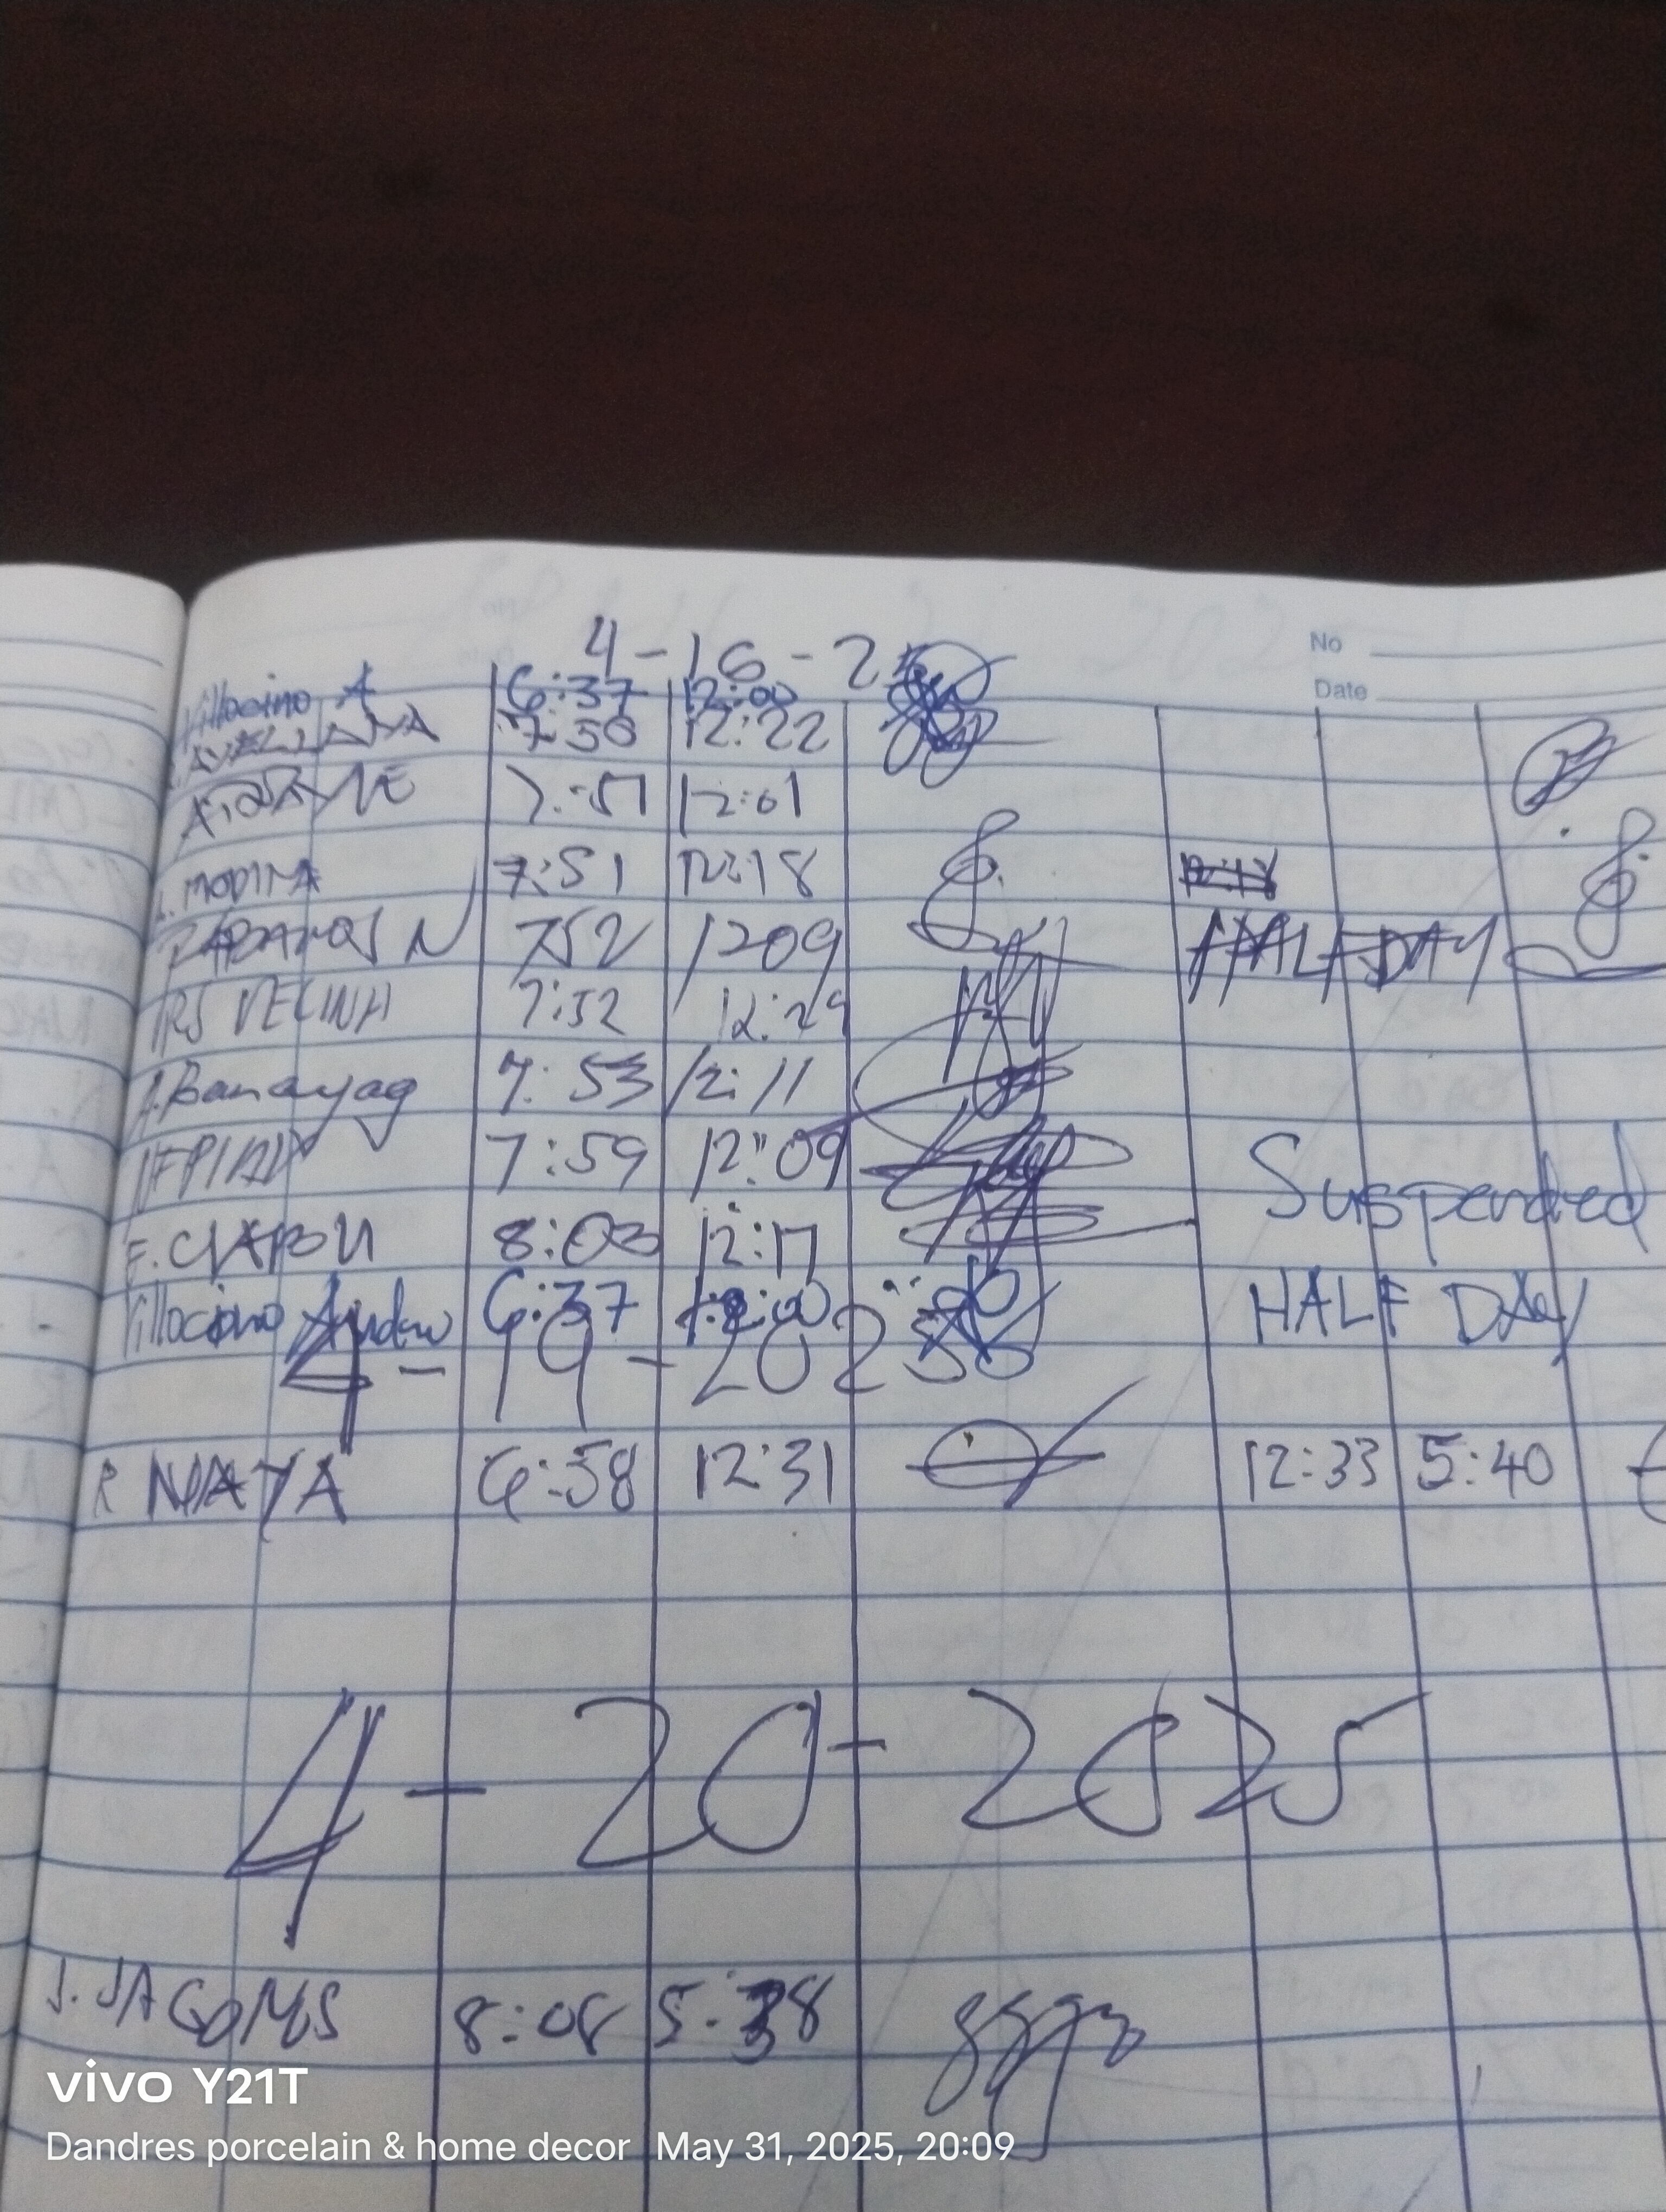 4-16-2
No
Date
Villocino A 6:37 12:00
7:50 12:22
7:51 12:01
L. MODINA 7:51 12:18 12:18
N 752 1209 HALF DAY
7:52 12:29
A. Banayag 7:53 12:11
7:59 12:09 Suspended
E. 8:03 12:17
Villocino Andrew 6:37 12:00 HALF DAY
4-19-2025
R MAYA 6:58 12:31 12:33 5:40
4-20-2025
J. JACOMS 8:08 5:38
vivo Y21T
Dandres porcelain & home decor May 31, 2025, 20:09